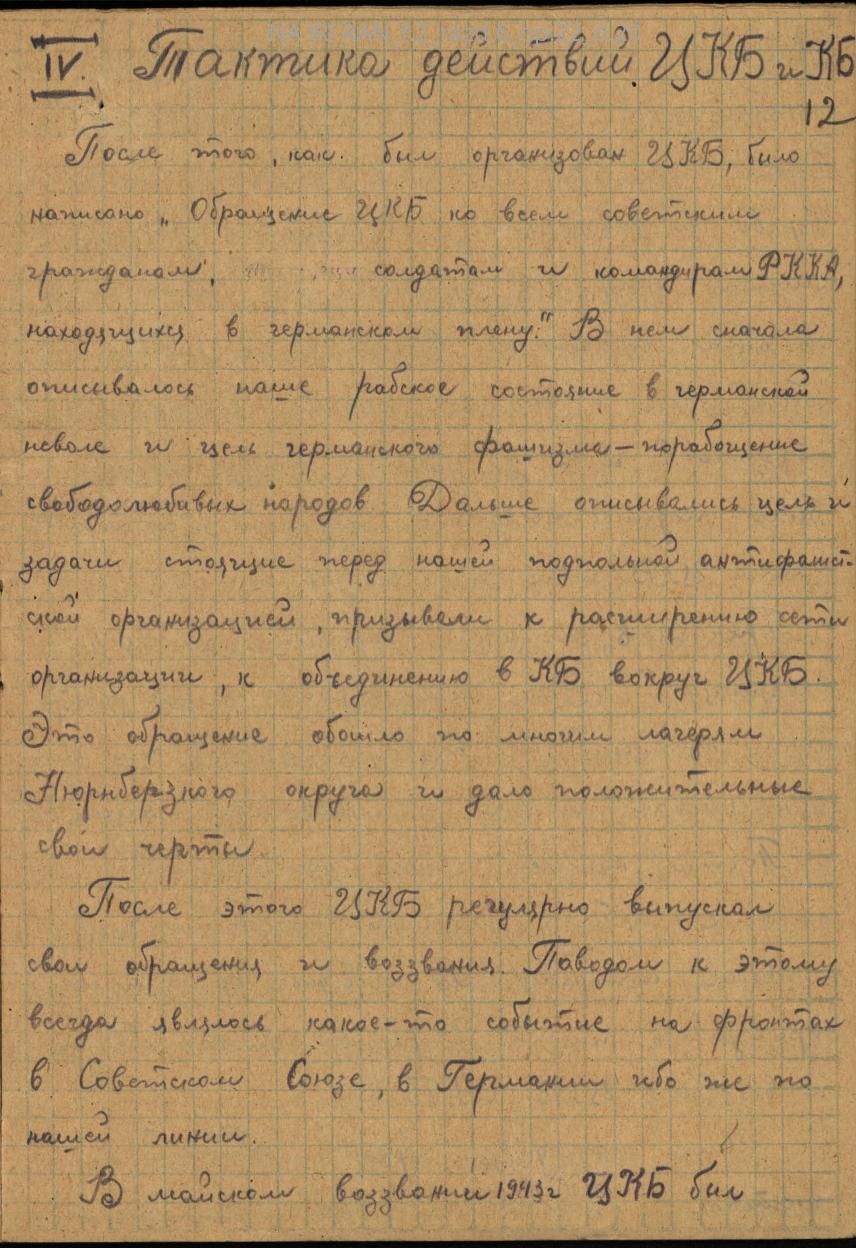 IV. Тактика действий ЦКБ и КБ
12
После того, как был организован ЦКБ, было
написано „Обращение ЦКБ ко всем советским
гражданам, солдатам и командирам РККА,
находящихся в германском плену." В нем сначала
описывалось наше рабское состояние в германской
неволе и цель германского фашизма – порабощение
свободолюбивых народов Дальше описывались цель и
задачи стоящие перед нашей подпольной антифашист-
ской организацией, призывали к расширению сети
организации, к объединению в КБ вокруг ЦКБ.
Это обращение обошло по многим лагерям
Нюрнбергзкого округа и дало положительные
свои черты
После этого ЦКБ регулярно выпускал
свои обращения и воззвания. Паводом к этому
всегда являлось какое-то событие на фронтах
в Советском Союзе, в Германии ибо же по
нашей линии.
В майском воззвании 1943 г ЦКБ был